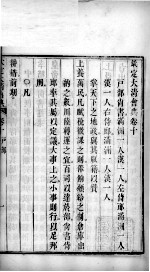 欽定大清會典卷十
戶部尚書滿洲一人漢一人左侍郎滿洲一人
漢一人右侍郎滿洲一人漢一人
掌天下之地政與其版籍以贊
上養萬民凡賦稅徵課之則俸餉頒給之制倉庫出
納之數川陸轉運之宜百司以達於部尚書侍
郎率其屬以定議大事上之小事則行以足邦
用
凡